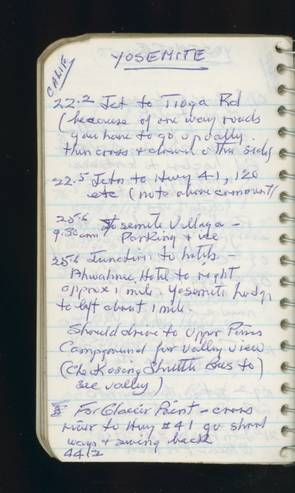 CALIF
YOSEMITE
22.2 Jct to Tioga Rd
(because of one way roads
you have to go up valley
then cross + down other side)
22.5 Jctn to Hwy 41, 120
etc (note above comment)
25.6 Yosemite Village -
9:30am Parking + ice
25.6 Junction to hotels -
Ahwahnee Hotel to right
approx 1 mile. Yosemite Lodge
to left about 1 mile.
Should drive to Upper Pines
Campground for valley view
(Check using Shuttle Bus to
see valley)
For Glacier Point - cross
river to Hwy #41 go short
ways + swing back
44.2